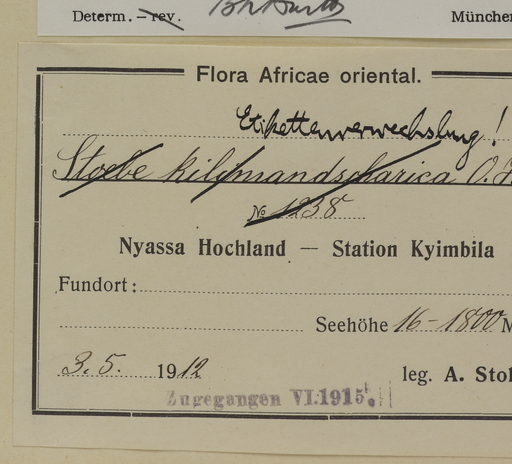 Determ. – rev. 
München
Flora Africae oriental.
Etikettenverwechslung!
Stoebe kilimandscharica O.
№ 1238
Nyassa Hochland — Station Kyimbila
Fundort:
Seehöhe 16–1800 M
3. 5. 1912 leg. A. Stol
Zugegangen VI.1915.